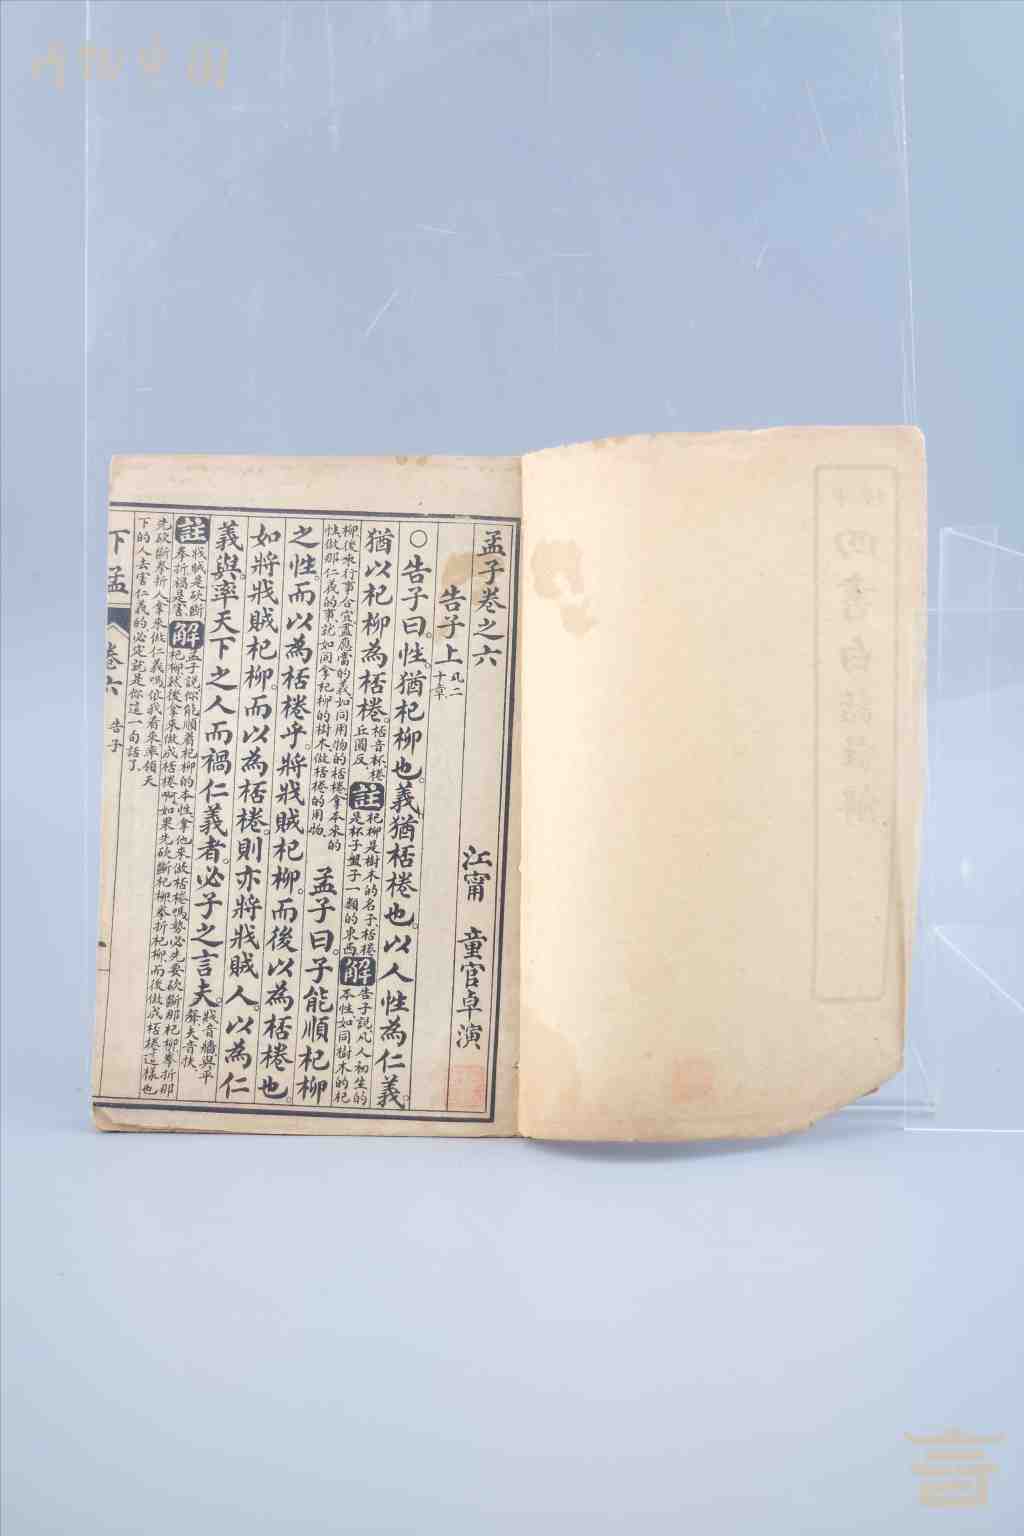 孟子卷之六
江甯 童官卓演
告子上 凡二十章
○告子曰。性。猶杞柳也。義猶桮棬也。以人性為仁義。
猶以杞柳為桮棬。桮音杯棬丘圓反。註杞柳是樹木的名子桮棬是杯子盤子一類的東西解告子說凡人初生的本性如同樹木的杞
柳後來行事合宜盡應當的義如同用物的桮棬拿本來的性做那仁義的事就如同拿杞柳的樹木做桮棬的用物、 孟子曰。子能順杞柳
之性。而以為桮棬乎。將戕賊杞柳。而後以為桮棬也。
如將戕賊杞柳。而以為桮棬。則亦將戕賊人。以為仁
義與。率天下之人而禍仁義者。必子之言夫。戕音牆與平聲夫音扶
註戕賊是砍斷拳折禍是害、解孟子說你能順着杞柳的本性拿他來做桮棬嗎勢必先要砍斷那杞柳拳折那杞柳然後拿來做成桮棬啊如果先砍斷杞柳拳折杞柳而後做成桮棬這樣也
先砍斷拳折人拿來做仁義嗎依我看來率領天
下的人去害仁義的必定就是你這一句話了、
下孟
卷六
告子
四書白話註解